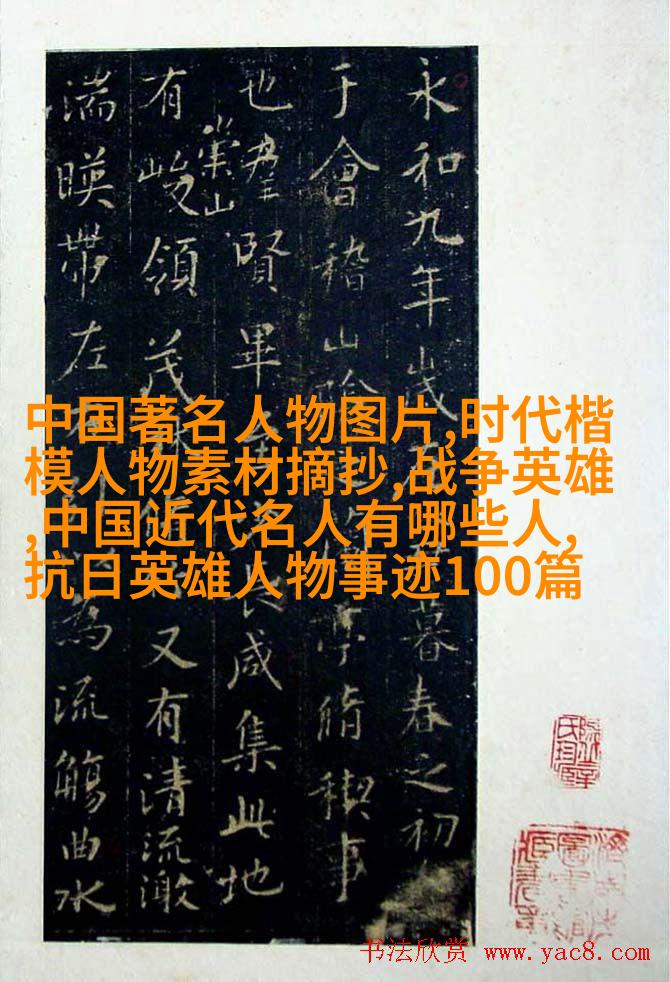 永和九年歲暮春之初
于會稽山陰亭脩稧事
也羣賢畢至長咸集此地
有崇山峻領茂林又有清流激
湍暎帶左右為流觴曲水
中国著名人物图片,时代楷
模人物素材摘抄,战争英雄
,中国近代名人有哪些人,
抗日英雄人物事迹100篇
书法欣赏 www.yac8.com